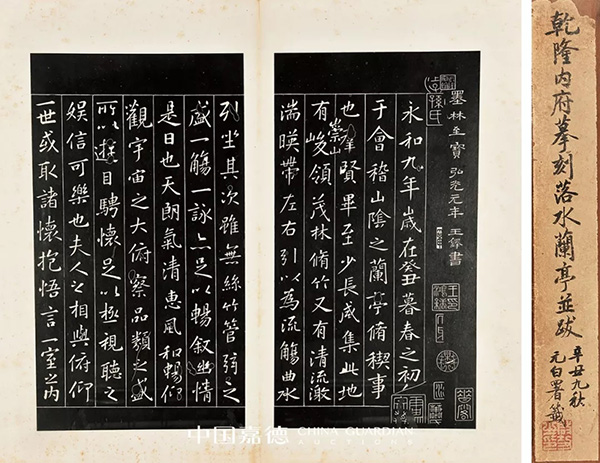 乾隆内府摹刻落水蘭亭並跋
辛丑九秋
元白署籤
墨林至寶 弘光元年 王鐸書
永和九年歲在癸丑暮春之初
于會稽山陰之蘭亭脩稧事
也群賢畢至少長咸集此地
有崇山峻領茂林脩竹又有清流激
湍暎帶左右引以為流觴曲水
列坐其次雖無絲竹管弦之
盛一觴一詠亦足以暢敘幽情
是日也天朗氣清惠風和暢仰
觀宇宙之大俯察品類之盛
所以遊目騁懷足以極視聽之
娛信可樂也夫人之相與俯仰
一世或取諸懷抱悟言一室之內
中国嘉德 CHINA GUARDIAN
AUCTIONS